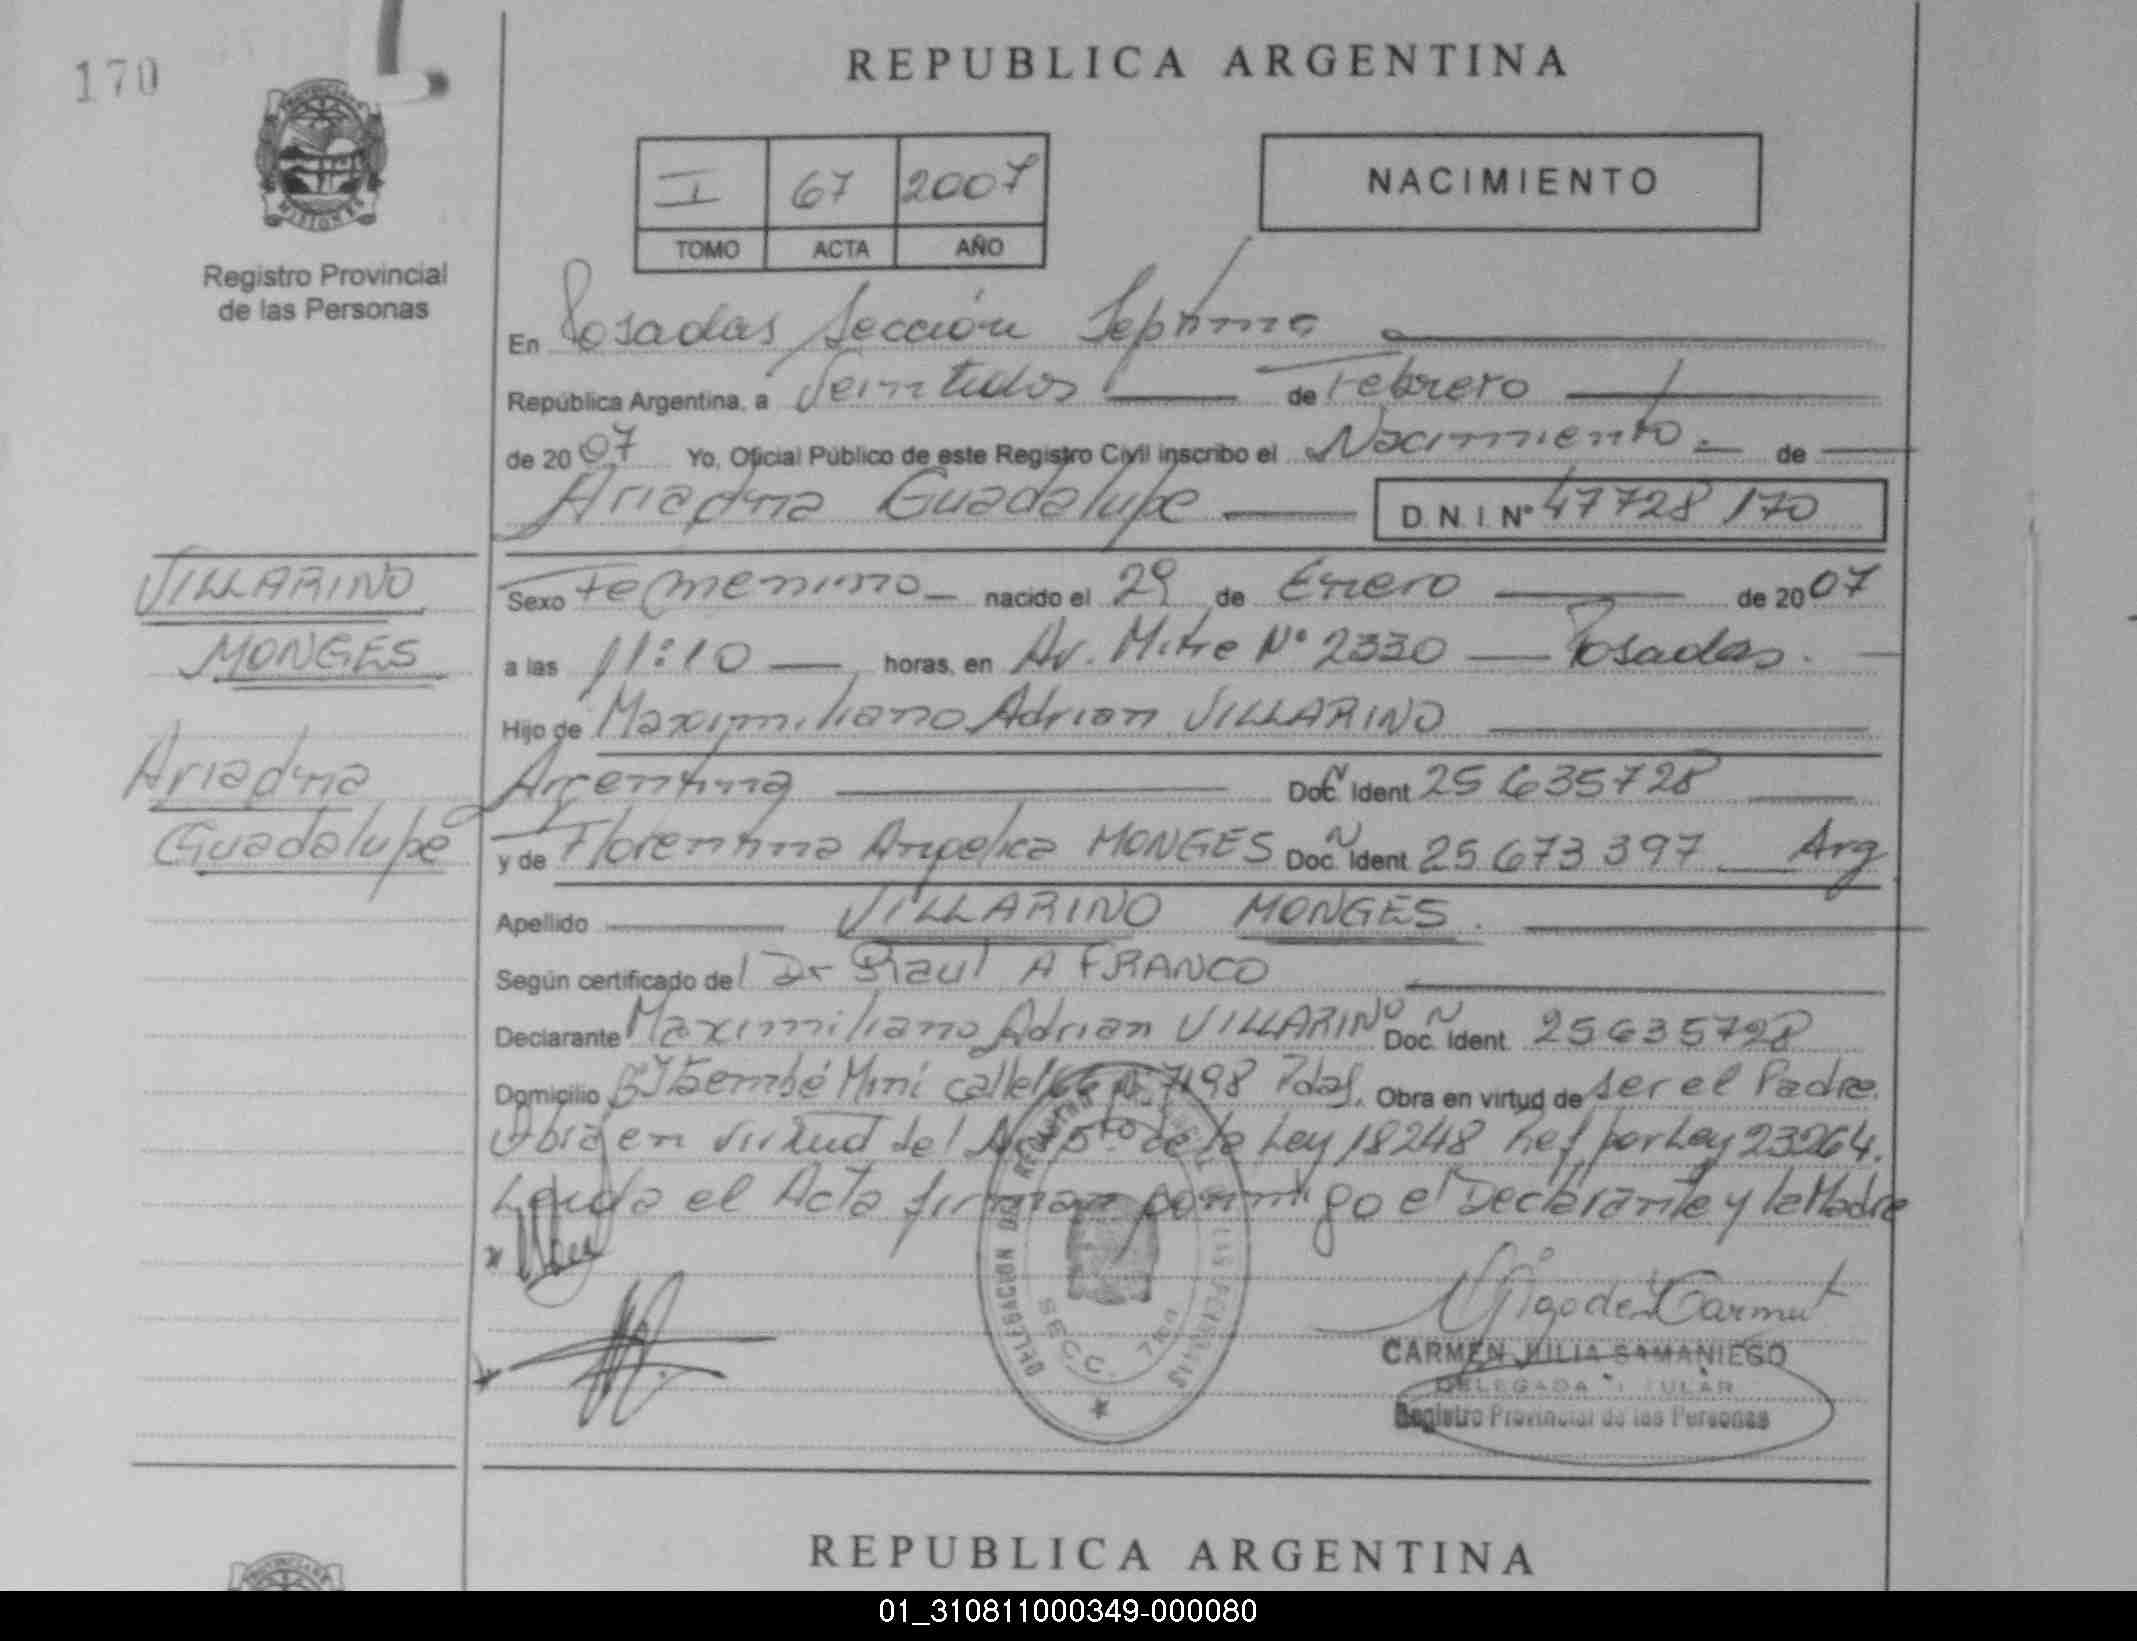 170
REPUBLICA ARGENTINA
I 67 2007
TOMO ACTA AÑO
NACIMIENTO
Registro Provincial
de las Personas
En Posadas Sección Septima
República Argentina, a Veintidos de Febrero
de 2007 Yo, Oficial Público de este Registro Civil inscribo el Nacimiento.— de
Ariadna Guadalupe D.N.I. Nº 47728170
VILLARINO
MONGES
Ariadna
Guadalupe
Sexo Femenino nacido el 29 de Enero de 2007
a las 11:10 horas, en Av. Mitre Nº 2330 — Posadas.
Hijo de Maximiliano Adrian VILLARINO
Argentina Doc. Ident 25635728
y de Florentina Angelica MONGES Doc. Ident 25673397 Arg
Apellido VILLARINO MONGES.
Según certificado del Dr Raul A FRANCO
Declarante Maximiliano Adrian VILLARINO Doc. Ident. 25635728
Domicilio Bº Itaembé Miní calle Nº 7198 Pdas. Obra en virtud de ser el Padre.
Obra en virtud del Art 5to de la Ley 18248 Ref por Ley 23264.
Leida el Acta firman conmigo el Declarante y la Madre
DELEGACION DEL REGISTRO
SECC. 7ma
CARMEN JULIA SAMANIEGO
DELEGADA TITULAR
Registro Provincial de las Personas
REPUBLICA ARGENTINA
01_310811000349-000080